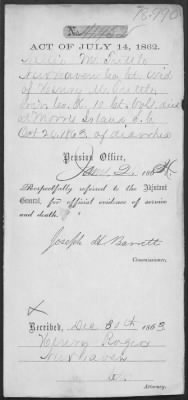 78.790
ACT OF JULY 14, 1862.
New Haven Co. Ct. Wid
of Henry
Priv. Co. 10 Ct. Vols. died
at Morris Island, S.C.
Oct 26, 1863, of diarrhea
Pension Office,
Jan 2, 1864
Respectfully referred to the Adjutant
General, for official evidence of service
and death.
Joseph H Barrett
Commissioner.
Received, Dec 30th 1863
Henry Rogers
New haven
Ct.
Attorney.